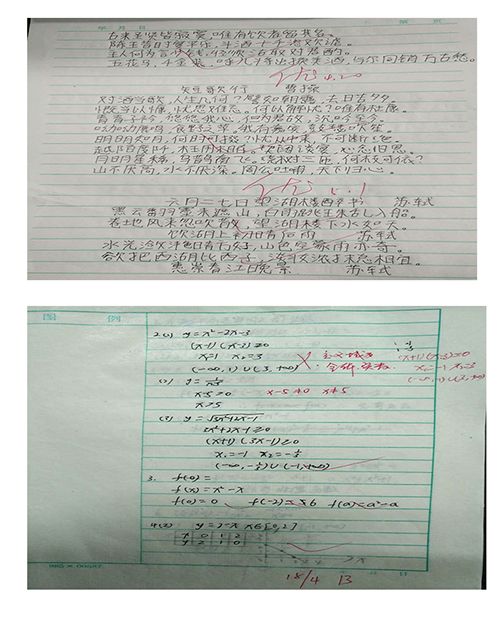 古来圣贤皆寂寞,唯有饮者留其名。
陈王昔时宴平乐,斗酒十千恣欢谑。
主人何为言少钱,径须沽取对君酌。
五花马,千金裘,呼儿将出换美酒,与尔同销万古愁。
优 4.20
短歌行 曹操
对酒当歌,人生几何?譬如朝露,去日苦多。
慨当以慷,忧思难忘。何以解忧?唯有杜康。
青青子衿,悠悠我心。但为君故,沉吟至今。
呦呦鹿鸣,食野之苹。我有嘉宾,鼓瑟吹笙。
明明如月,何时可掇?忧从中来,不可断绝。
越陌度阡,枉用相存。契阔谈讌,心念旧恩。
月明星稀,乌鹊南飞。绕树三匝,何枝可依?
山不厌高,水不厌深。周公吐哺,天下归心。
优 5.1
六月二十七日望湖楼醉书 苏轼
黑云翻墨未遮山,白雨跳珠乱入船。
卷地风来忽吹散,望湖楼下水如天。
饮湖上初晴后雨 苏轼
水光潋滟晴方好,山色空蒙雨亦奇。
欲把西湖比西子,淡妆浓抹总相宜。
惠崇春江晚景 苏轼
图 例
2(1) y=x²-2x-3
(x-1)(x-3)≥0
x=1 x₂=3
(-∞,1)∪(3,+∞)
定义域为
全体实数
(x+1)(x-3)=0
x=-1 x=3
(2)
x-5≥0 x-5≠0 x≠5
x>5
(3) y=√3x²+2x-1
3x²+2x-1≥0
(x+1)(3x-1)≥0
3. f(0)=
f(x)=x²-x
f(0)=0 f(-2)= 6 f(a)=a²-a
4(2) y=2-x x∈[0,2]
x 0 1 2
y 2 1 0
18/4 B